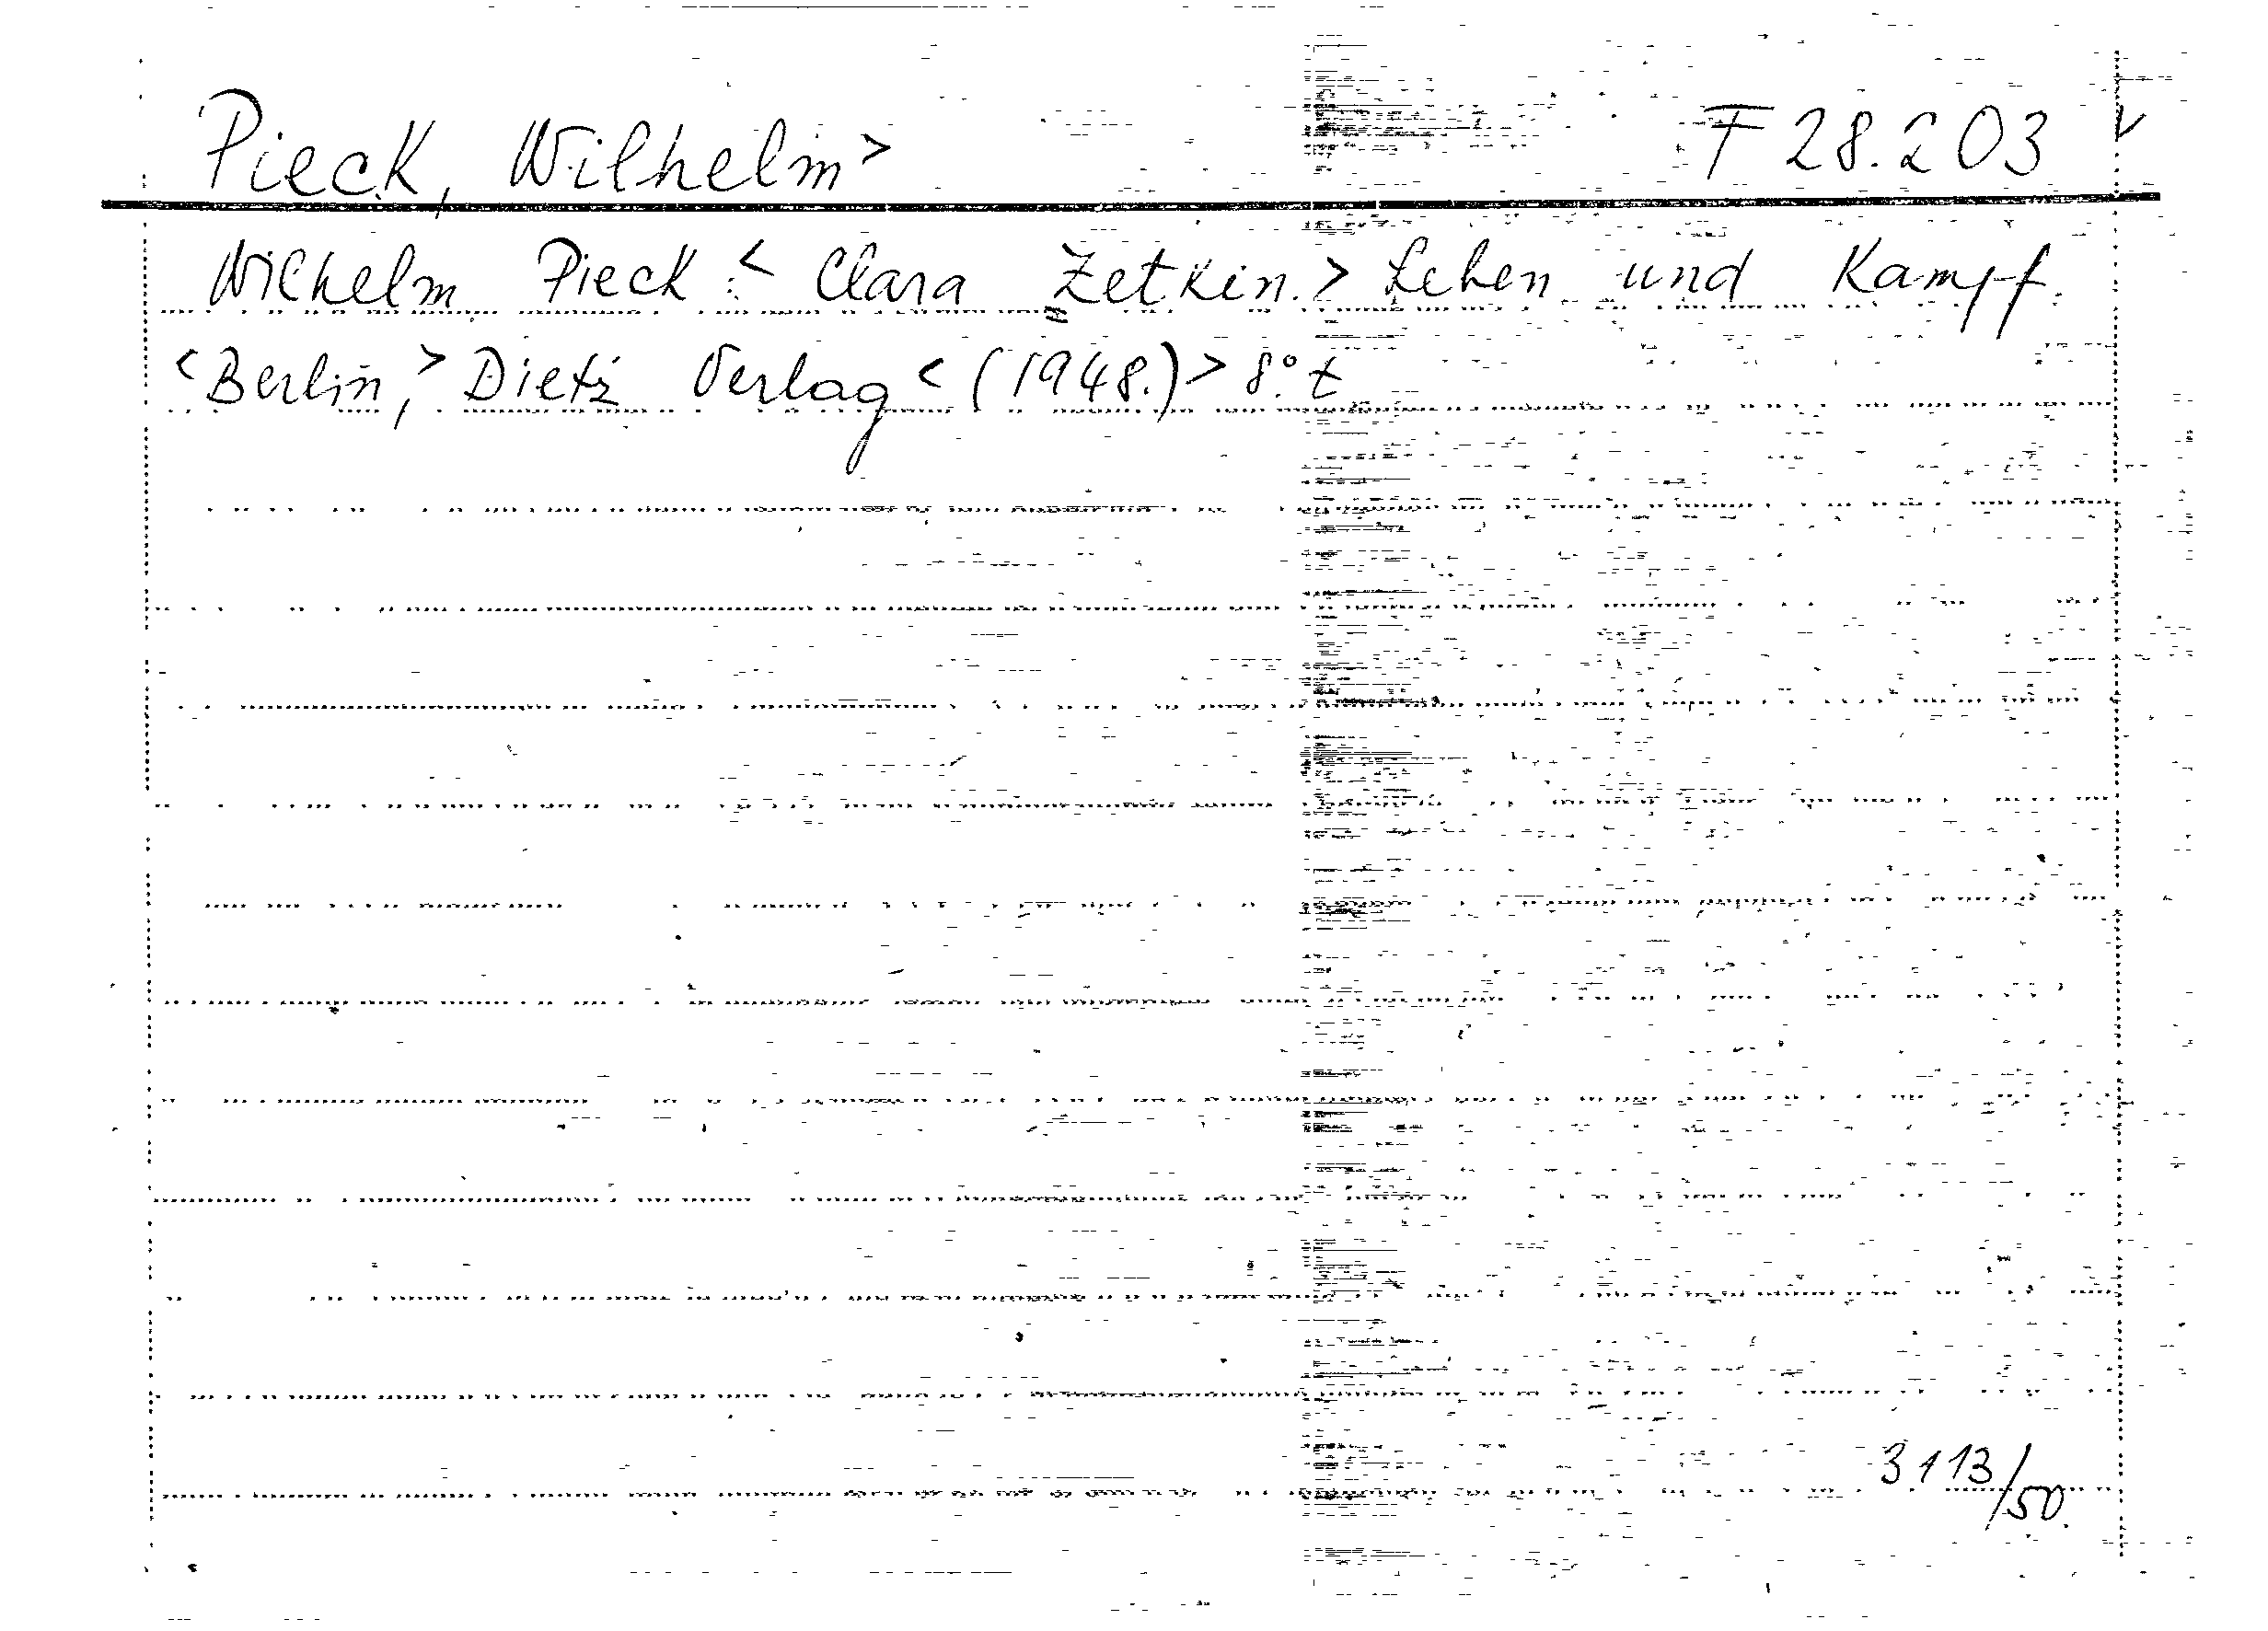 Pieck, Wilhelm> F 28.203 v
Wilhelm Pieck: < Clara Zetkin. > Leben und Kampf.
<Berlin,> Dietz Verlag < (1948.) > 8° t
3113/50.